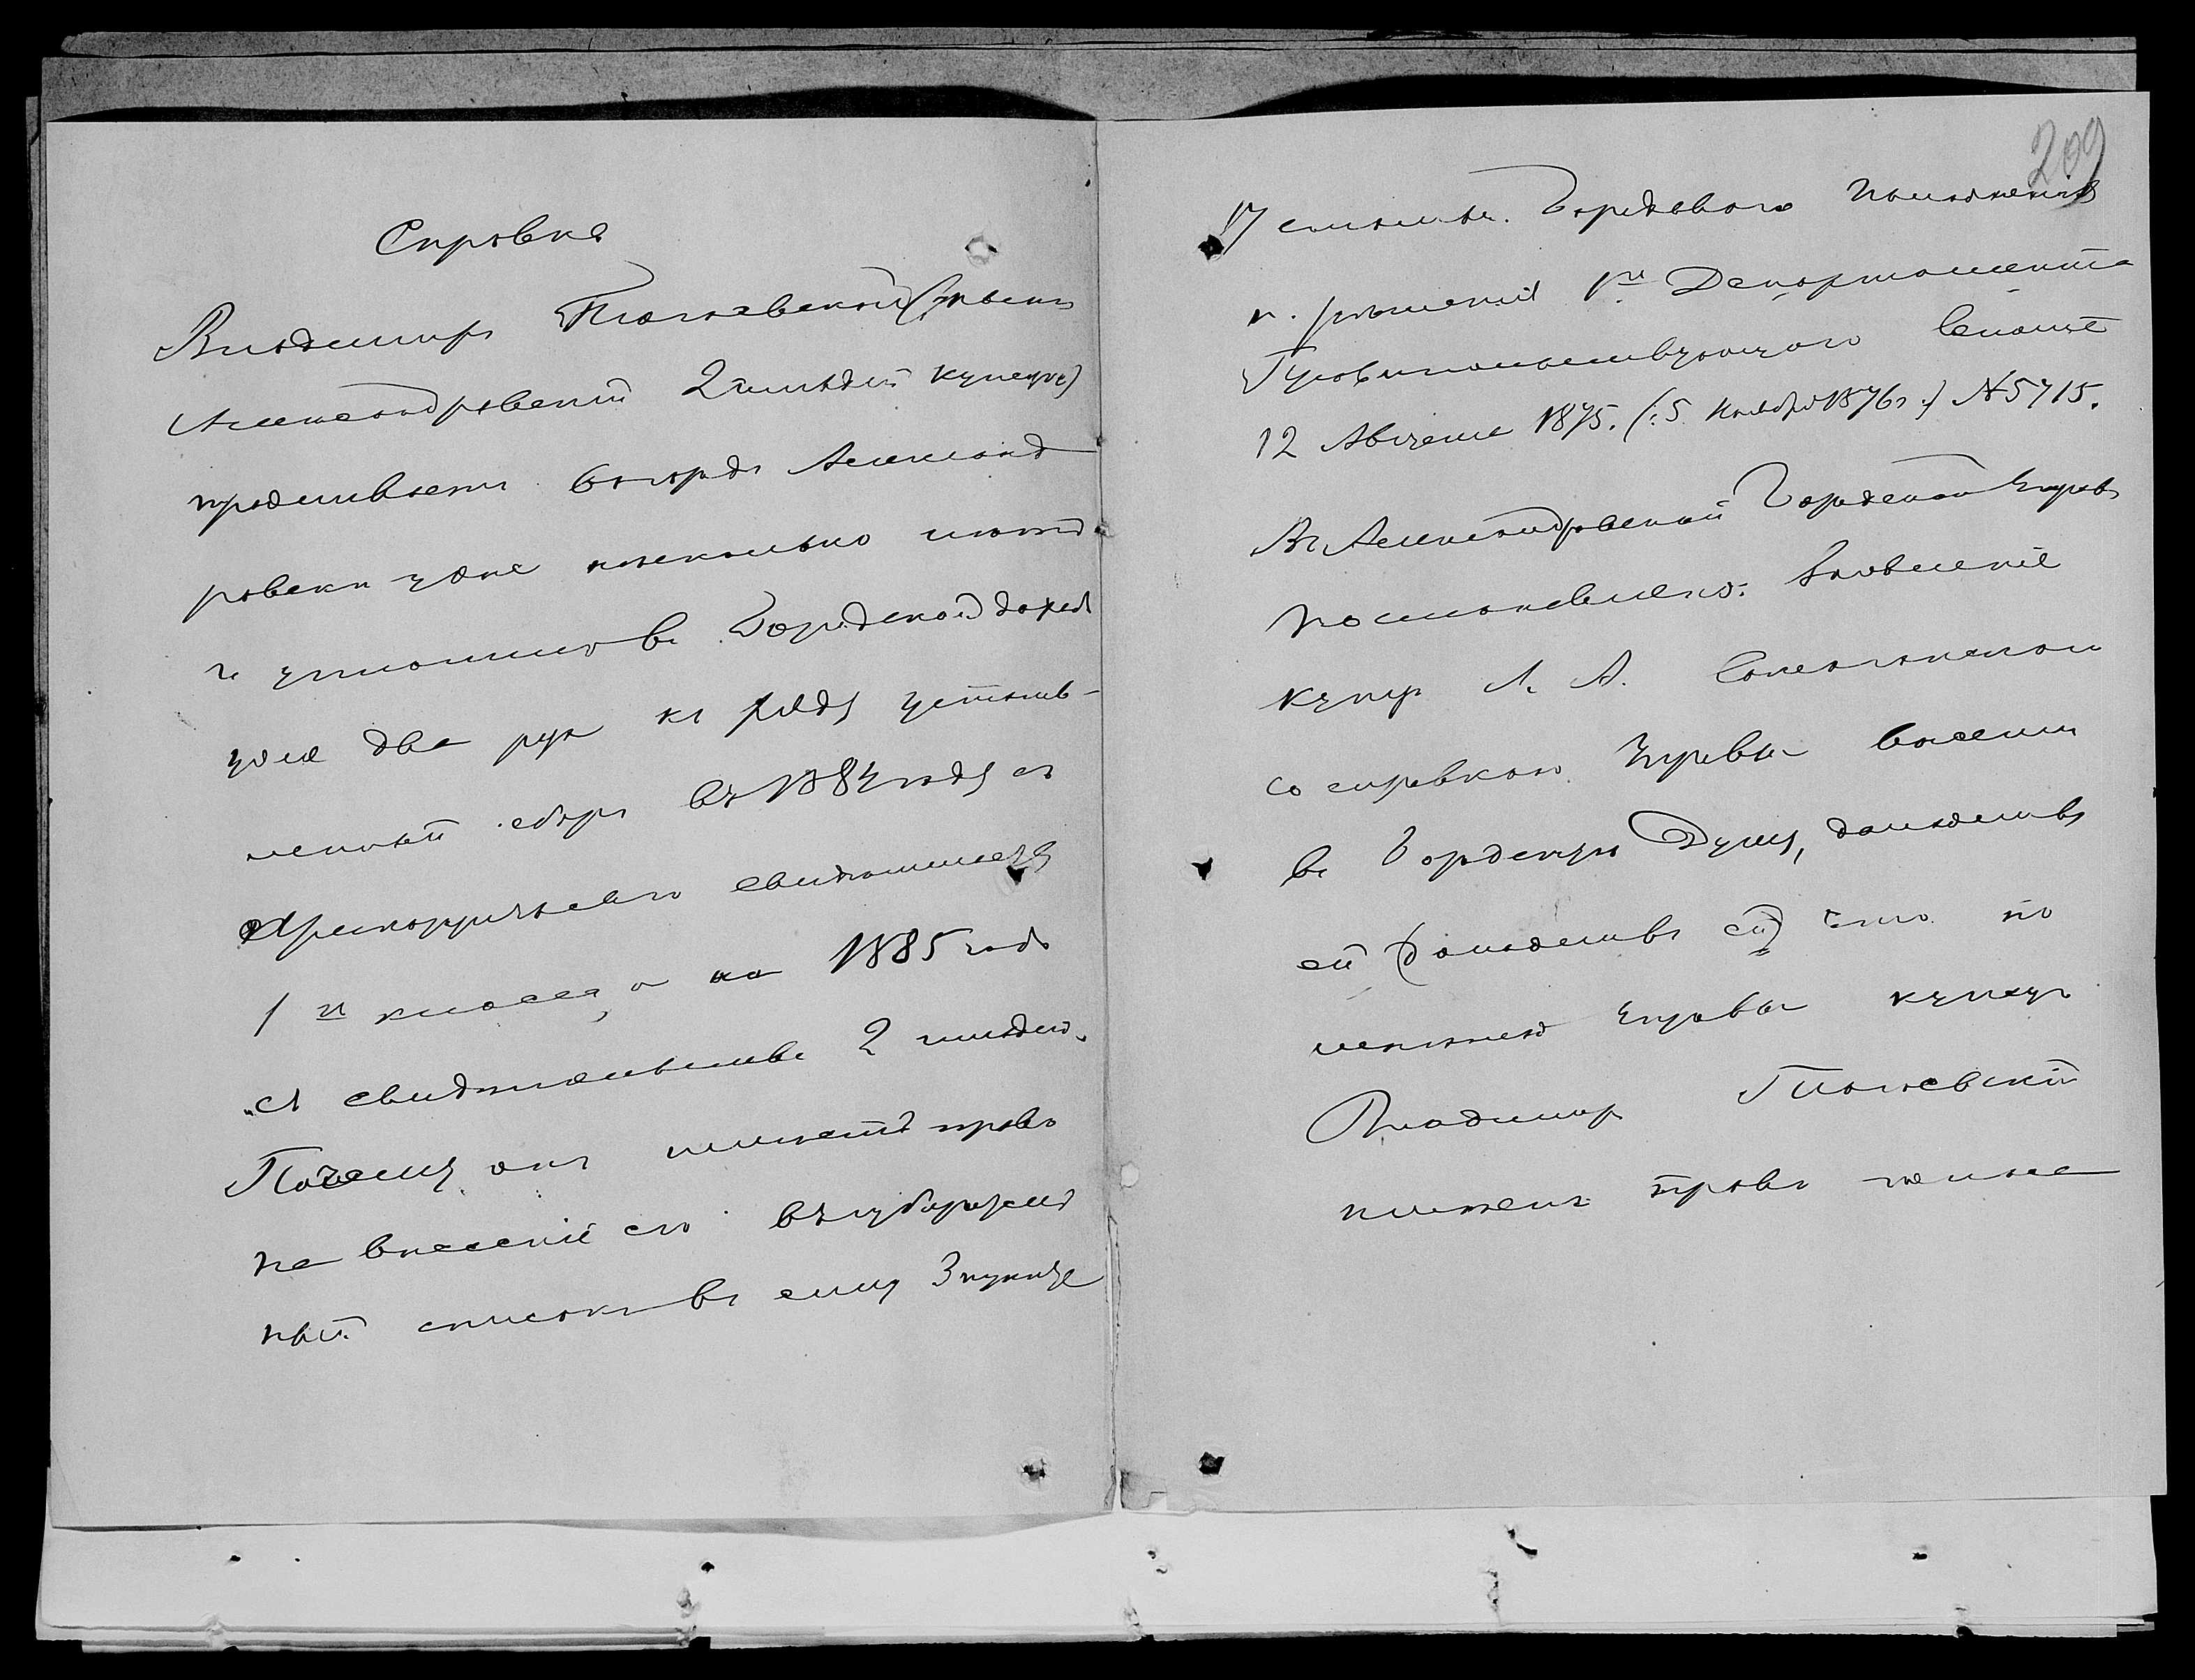 Справка
Владимир Тиогоевский
Александровский 2 гильдіи купецъ)
проживает в городе Александ
ровске уже несколько лет
и уплатил в Городской доход
уже два ру к ряду установ-
ленный сборъ въ 1884 году съ
Прикащичьяго свидетельства
1 го класса, а на 1885 годъ
съ свидетельства 2 гильдіи.
Почему онъ имеетъ право
на внесеніе его въ избиратель
ный списокъ в силу 3 пункта
209
17 статьи. Городоваго Положенія
и решенія 1го Департамента
Правительствующаго Сената
12 Августа 1875. (: 5 Ноября 1876 г.) № 5715.
Въ Александровской Городской Управе
постановлено: Заявленіе
купц Л. А.
со справкою Управы внести
в Городскую Думу, доложивъ
ей (доложивъ ей) что по
мненію Управы купецъ
Владимир Тиогоевскій
имеетъ право голоса